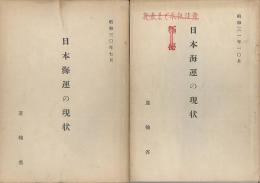 昭和三〇年七月
日本海運の現状
運輸省
昭和三一年一〇月
日本海運の現状
運輸省